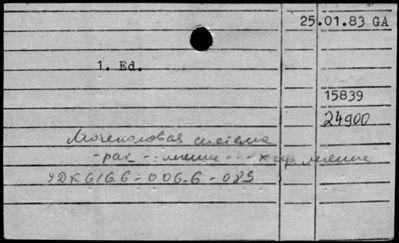 25.01.83 GA
1. Ed.
15839
24900
Мочеполовая система
-рак-
УДК 616.6-006.6-089